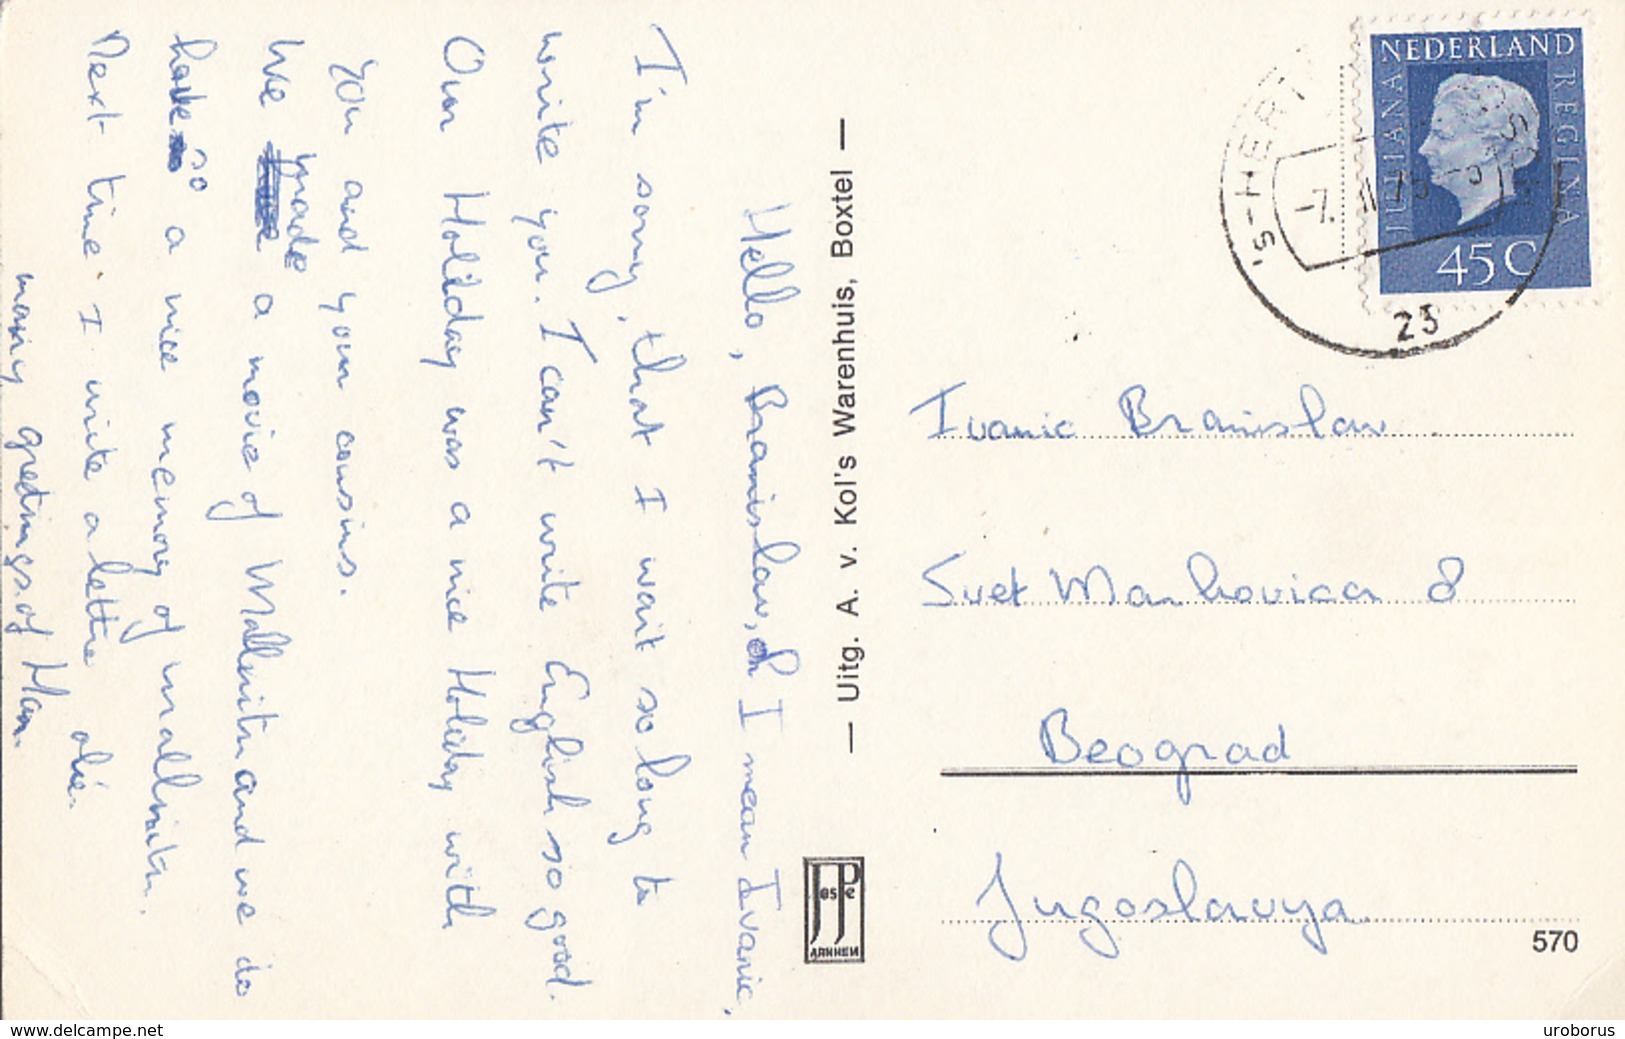 Hello, Branislav, oh I mean Ivanic,
I'm sorry, that I wait so long to
write you. I can't write English so good.
Our Holiday was a nice Holiday with
you and your cousins.
We made a movie of Mallinitin and we do
have so a nice memory of mallinitin.
Next time I write a lettre oké.
many gretings of Han.
— Uitg. A. v. Kol's Warenhuis, Boxtel —
JosPe
ARNHEM
NEDERLAND
JULIANA
REGINA
45C
'S-HERT
-7. II 75
23
Ivanic Branislav
Svet Markovica 8
Beograd
Jugoslavya
570
www.delcampe.net
uroborus